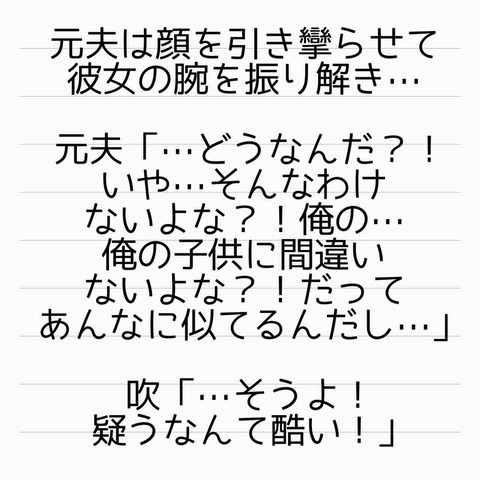 元夫は顔を引き攣らせて
彼女の腕を振り解き…
元夫「…どうなんだ？！
いや…そんなわけ
ないよな？！俺の…
俺の子供に間違い
ないよな？！だって
あんなに似てるんだし…」
吹「…そうよ！
疑うなんて酷い！」